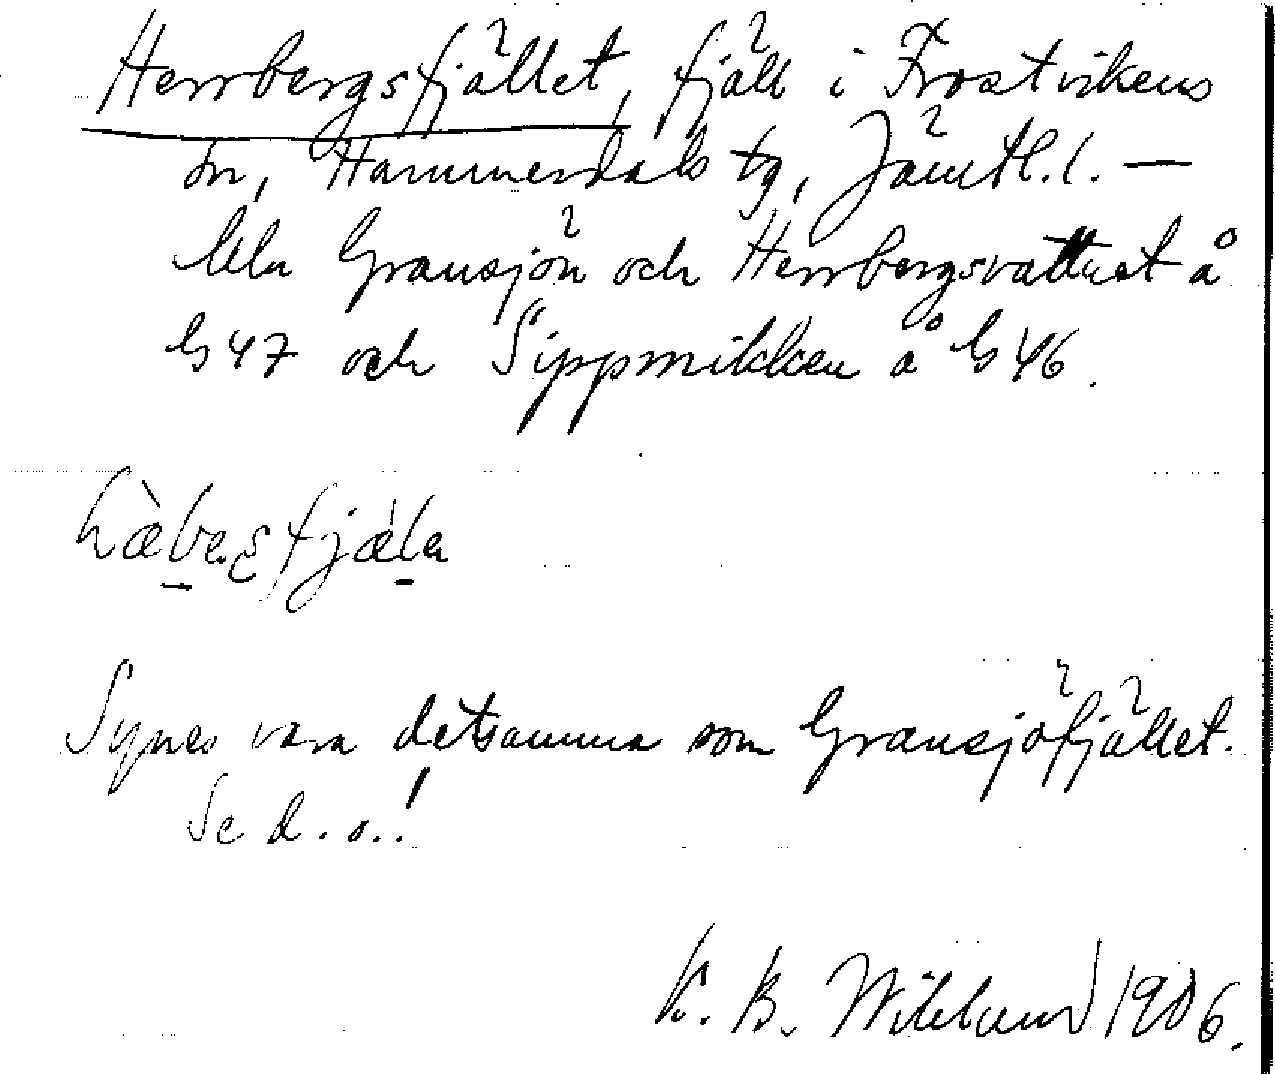 Herrbergsfjället, fjäll i Frostvikens
sn, Hammerdals tg, Jämtl. l. —
Mln Gransjön och Herrbergsvattnet å
b 47 och Sippmikken å b 46.
hæ̀bergfjæ̀la
Synes vara detsamma som Gransjöfjället.
Se d. o.!
K. B. Wiklund 1906.